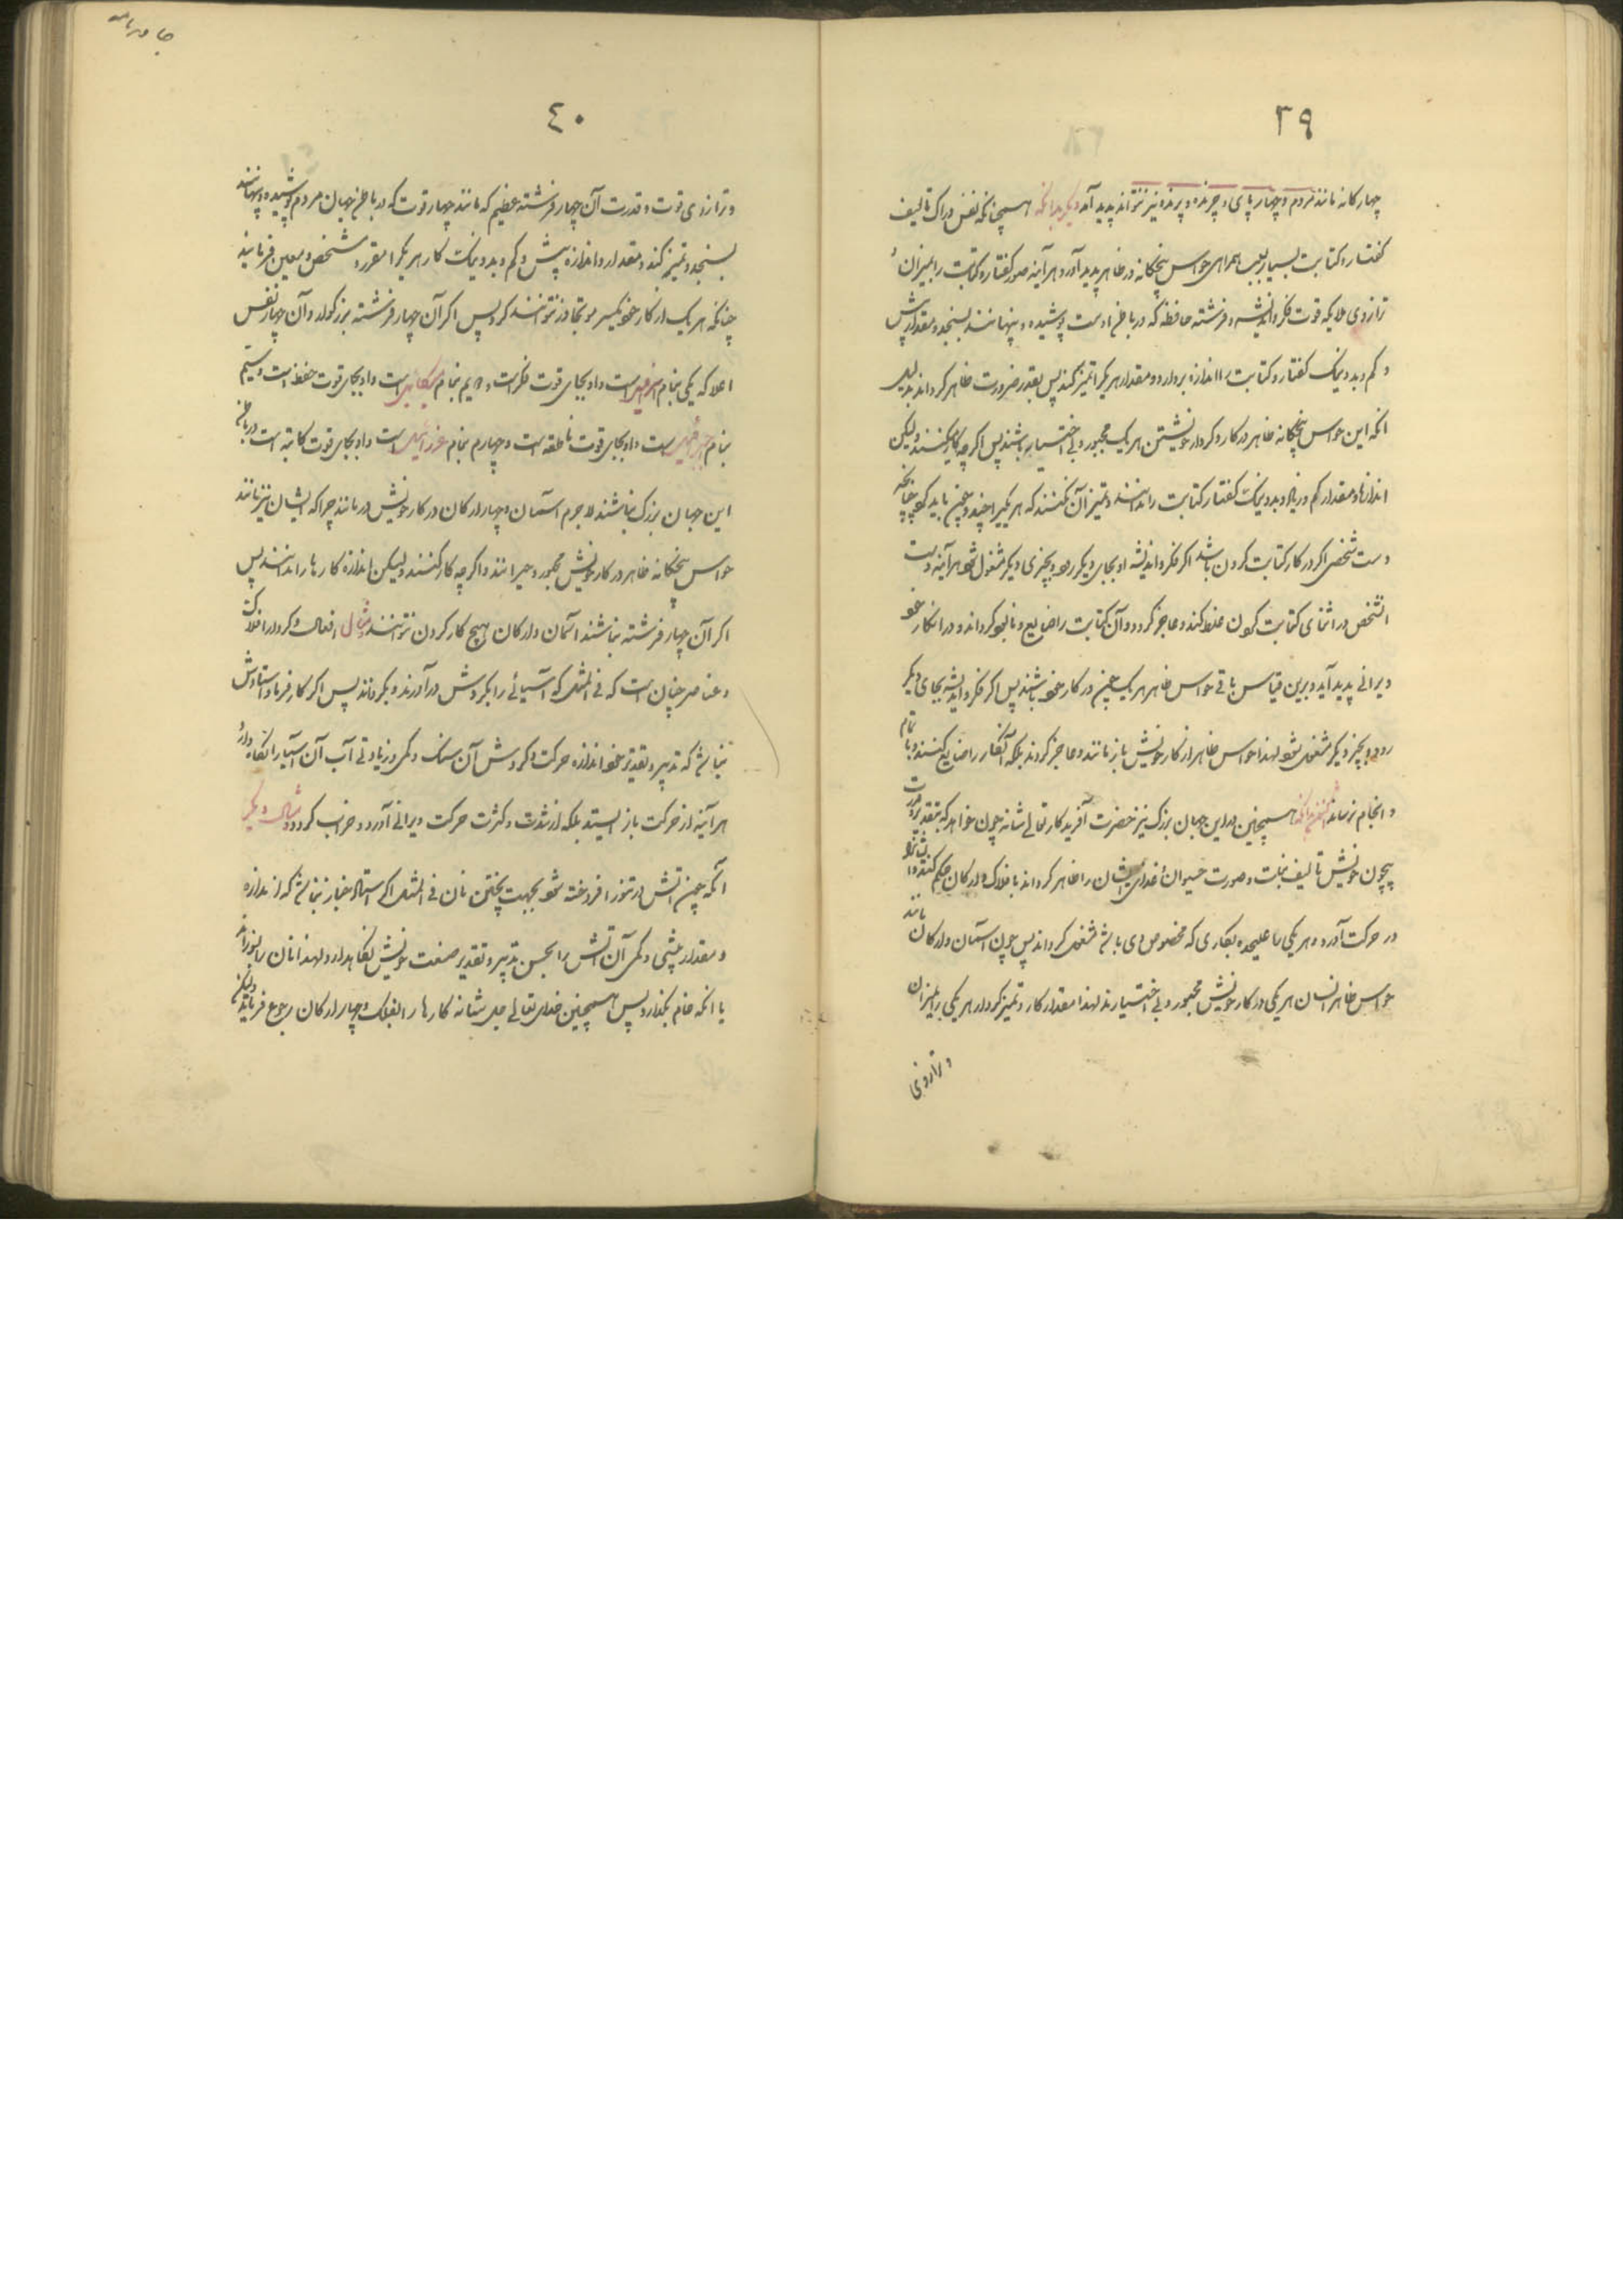 ۳۹
چهارکانه مانند مردم و چهارپای و چرنده و پرنده نیز نتواند پدید آمد دیکر بدانکه همچنانکه نفس دراک تالیف
کفتار و کتابت بسیار بسبب همراهی حواس پنجکانه در ظاهر پدید آورد هرآینه صور کفتار و کتابت را بمیزان
ترازوی ملایکه قوت فکر و اندیشه و فرشته حافظه که در باطن اوست پوشیده و پنهانند بسنجد و مقدار بیش
و کم و بد و نیک کفتار و کتابت را اندازه بردارد و مقدار هریکرا تمیز کند پس بقدر ضرورت ظاهر کرداند بدلیل
انکه این حواس پنجکانه ظاهر در کار و کردار خویشتن هریک مجبور و بی اختیار باشند پس اکرچه کار کنند ولیکن
اندازها و مقدار کم و زیاد و بد و نیک کفتار کتابت را ندانند و تمیز آن نکنند که هریکیرا چند و چون باید کرد چنانچه
دست شخصی اکر در کار کتابت کردن باشد اکر فکر و اندیشه او بجای دیکر رود و بچیزی دیکر مشغول شود هرآینه دست
آنشخص در اثنای کتابت کردن غلط کند و عاجز کردد و آن کتابت را ضایع و نابود کرداند و در انکار خود
ویرانی پدید آید و برین قیاس باقی حواس ظاهر هریک چنین در کار خود باشند پس اکر فکر و اندیشه بجای دیکر
رود و بچیز دیکر مشغول شود لهذا حواس ظاهر از کار خویش باز مانند و عاجز کردند بلکه آنکار را ضایع کنند و باتمام
و انجام نرسانند همچنین در این جهان بزرک نیز حضرت آفریدکار تعالی شانه چون خواهد که بتقدیر و قدرت
بیچون خویش تالیف نبات و صورت حیوان و غذای ایشان را ظاهر کرداند بافلاک و ارکان حکم کند و ایشانرا
در حرکت آورد و هریکی را علیحده بکاری که مخصوص وی باشد مشغول کرداند پس چون آسمان و ارکان مانند
حواس ظاهر انسان هریکی در کار خویش مجبور و بی اختیارند لهذا مقدار کار و تمیز کردار هریکی را بمیزان
و ترازوی
۴۰
و ترازوی قوت و قدرت آن چهار فرشته عظیم که مانند چهار قوت که در باطن جهان مردم پوشیده و پنهانند
بسنجد و تمیز کند و مقدار و اندازه بیش و کم و بد و نیک کار هریکرا مقرر و مشخص و معین فرمایند
چنانکه هریک از کار خود یکسر مو تجاوز نتوانند کرد پس اکر آن چهار فرشته بزرکوار و آن چهار نفس
اعلا که یکی بنام اسرافیل است و او بجای قوت فکر است و دویم بنام میکائیل است و او بجای قوت حفظ است و سیم
بنام جبرائیل است و او بجای قوت ناطقه است و چهارم بنام عزرائیل است و او بجای قوت کاتبه است در باطن
این جهان بزرک نباشند لاجرم آسمان و چهار ارکان در کار خویش درمانند چراکه ایشان نیز مانند
حواس پنجکانه ظاهر در کار خویش مجبور و حیرانند و اکرچه کار کنند ولیکن اندازه کارها را ندانند پس
اکر آن چهار فرشته نباشند آسمان و ارکان هیچ کار کردن نتوانند و مثال افعال و کردار افلاک
و عناصر چنان است که فی المثل که آسیائی را بکردش درآورند و بکردانند پس اکر کارفرما و استادش
نباشد که بتدبیر و تقدیر خود اندازه حرکت و کردش آن سنک و کمی و زیادتی آب آن آسیا را نکاه دارد
هرآینه از حرکت باز ایستد بلکه از شدت و کثرت حرکت ویرانی آورد و خراب کردد و مثال دیکر
آنکه چون آتش در تنور افروخته شود بجهت پختن نان فی المثل اکر استاد خباز نباشد که از اندازه
و مقدار بیشی و کمی آن آتش را بحسن تدبیر و تقدیر صنعت خویش نکاهدارد لهذا نان را بسوزاند
یا انکه خام بکذارد پس همچنین خدای تعالی جل شانه کارها را بافلاک و چهار ارکان رجوع فرماید ولیکن